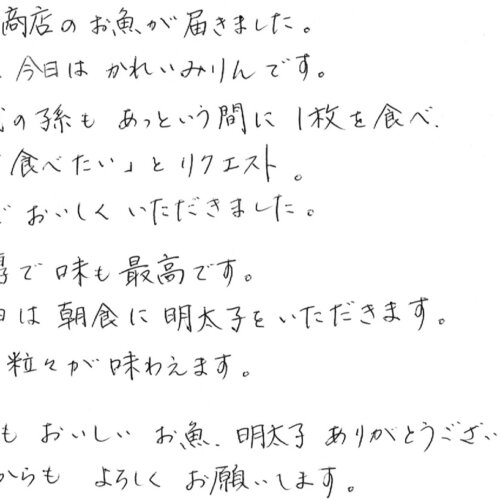 商店のお魚が届きました。
今日は かれいみりんです。
の孫も あっという間に 1枚を食べ、
食べたい」とリクエスト。
おいしく いただきました。
で 味も 最高です。
は 朝食に 明太子をいただきます。
粒々が 味わえます。
も おいしい お魚、明太子 ありがとうござい
からも よろしく お願いします。